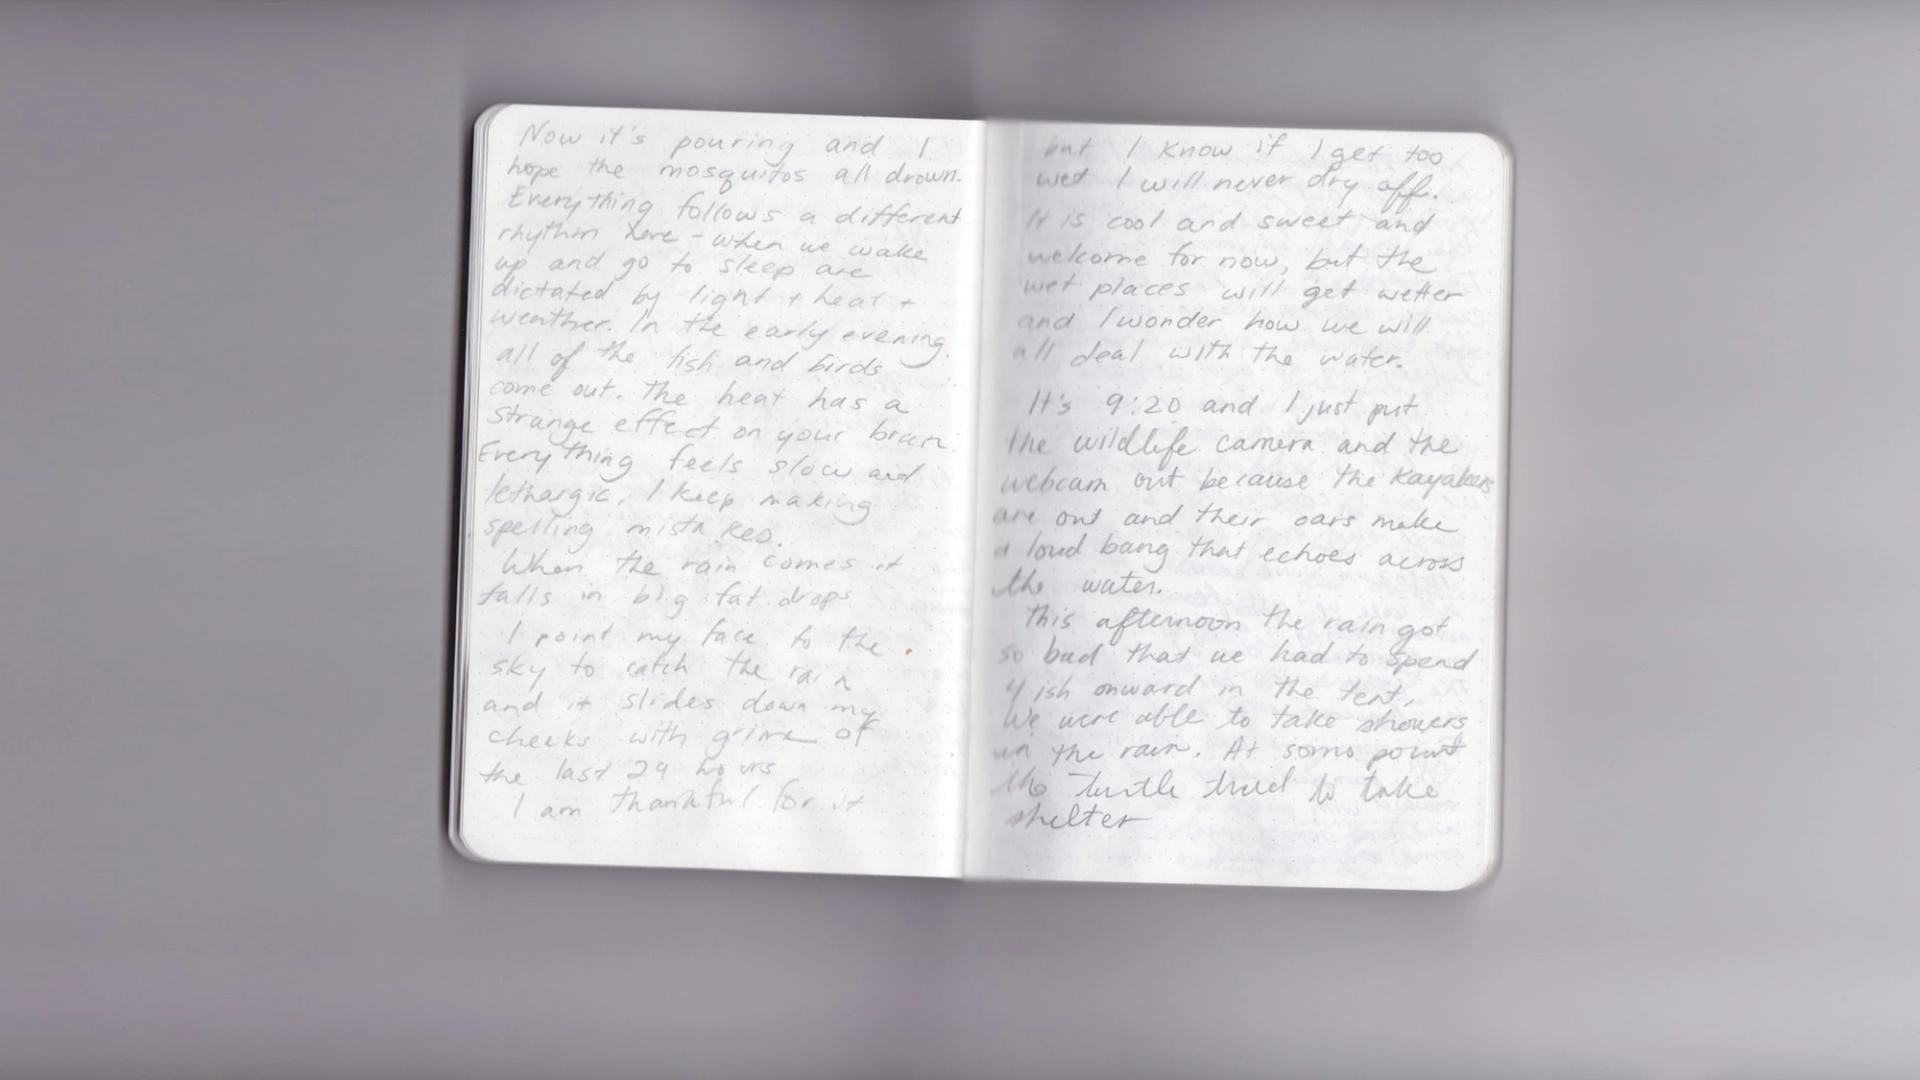 Now it's pouring and I
hope the mosquitos all drown.
Everything follows a different
rhythm here - when we wake
up and go to sleep are
dictated by light + heat +
weather. In the early evening
all of the fish and birds
come out. The heat has a
strange effect on your brain.
Everything feels slow and
lethargic. I keep making
spelling mistakes.
When the rain comes it
falls in big fat drops
I point my face to the
sky to catch the rain
and it slides down my
cheeks with grime of
the last 24 hours
I am thankful for it
but I know if I get too
wet I will never dry off.
It is cool and sweet and
welcome for now, but the
wet places will get wetter
and I wonder how we will
all deal with the water.
It's 9:20 and I just put
the wildlife camera and the
webcam out because the kayakers
are out and their oars make
a loud bang that echoes across
the water.
This afternoon the rain got
so bad that we had to spend
4 ish onward in the tent.
We were able to take showers
in the rain. At some point
the turtle tried to take
shelter